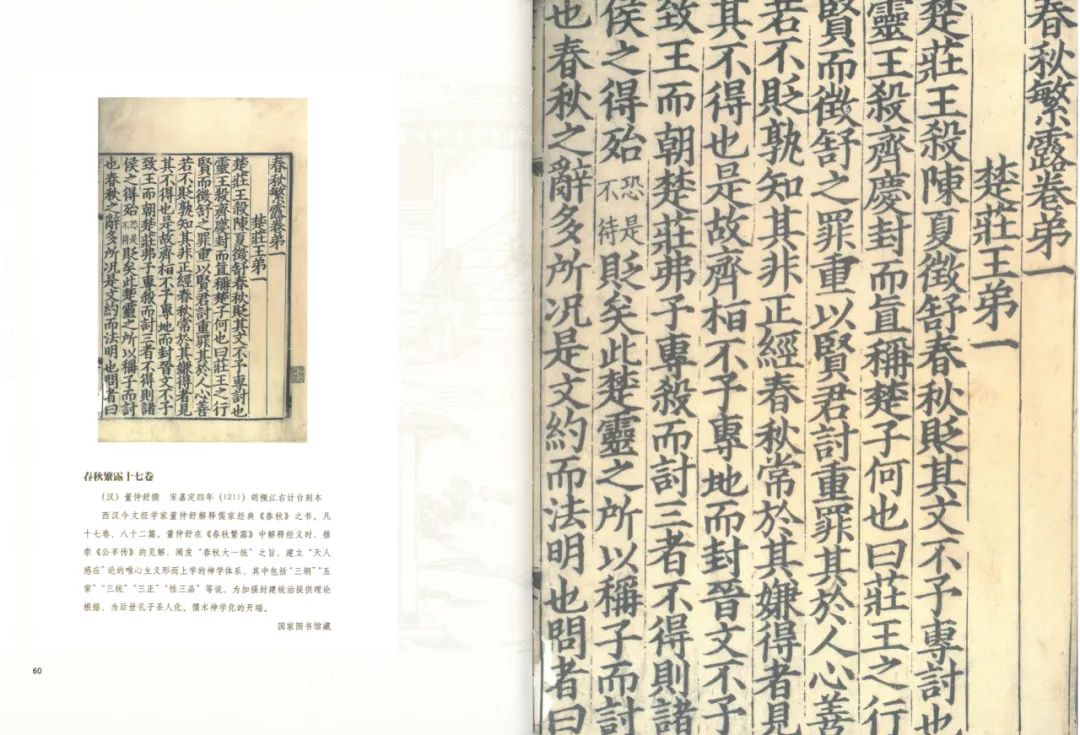 春秋繁露卷弟一
楚莊王弟一
楚莊王殺陳夏徵舒春秋貶其文不予專討也
靈王殺齊慶封而直稱楚子何也曰莊王之行
賢而徵舒之罪重以賢君討重罪其於人心善
若不貶孰知其非正經春秋常於其嫌得者見
其不得也是故齊桓不予專地而封晉文不予
致王而朝楚莊弗予專殺而討三者不得則諸
侯之得殆恐是不待貶矣此楚靈之所以稱子而討
也春秋之辭多所况是文約而法明也問者曰
春秋繁露十七卷
（汉）董仲舒撰　宋嘉定四年（1211）胡槻江右计台刻本
西汉今文经学家董仲舒解释儒家经典《春秋》之书。凡
十七卷，八十二篇。董仲舒在《春秋繁露》中解释经义时，推
崇《公羊传》的见解，阐发“春秋大一统”之旨，建立“天人
感应”论的唯心主义形而上学的神学体系，其中包括“三纲”“五
常”“三统”“三正”“性三品”等说，为加强封建统治提供理论
根据，为后世孔子圣人化、儒术神学化的开端。
国家图书馆藏
60
春秋繁露卷弟一
楚莊王弟一
楚莊王殺陳夏徵舒春秋貶其文不予專討也
靈王殺齊慶封而直稱楚子何也曰莊王之行
賢而徵舒之罪重以賢君討重罪其於人心善
若不貶孰知其非正經春秋常於其嫌得者見
其不得也是故齊桓不予專地而封晉文不予
致王而朝楚莊弗予專殺而討三者不得則諸
侯之得殆恐是不待貶矣此楚靈之所以稱子而討
也春秋之辭多所况是文約而法明也問者曰